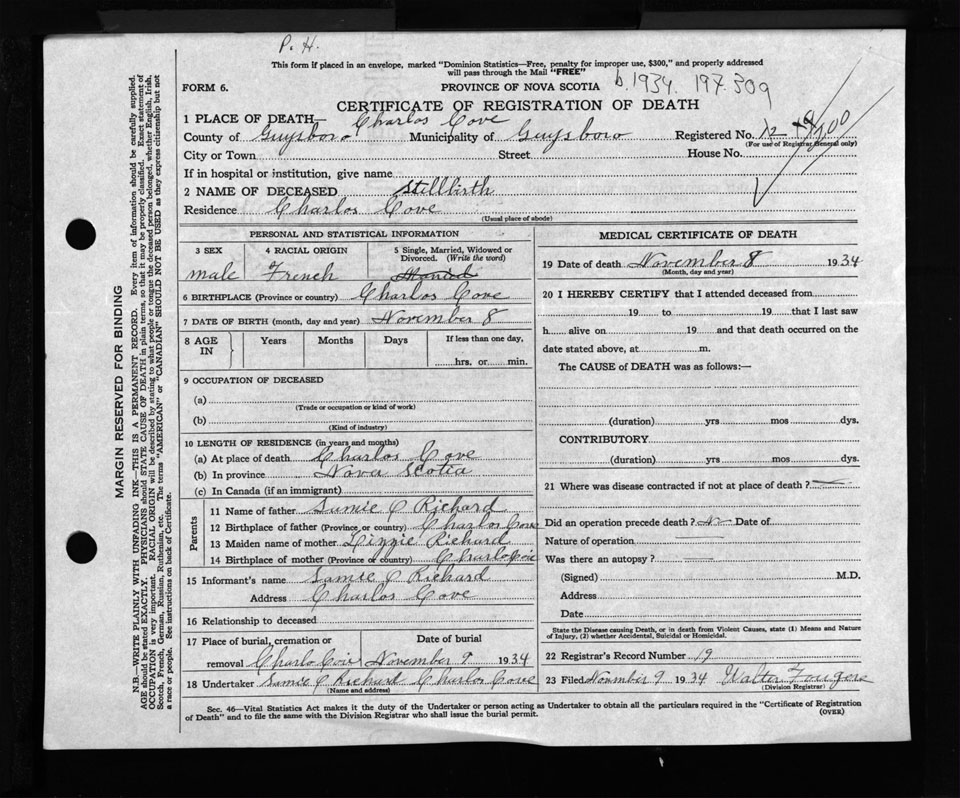 P. H.
This form if placed in an envelope, marked "Dominion Statistics—Free, penalty for improper use, $300," and properly addressed
will pass through the Mail "FREE"
FORM 6.
PROVINCE OF NOVA SCOTIA
b. 1934. 197.309
CERTIFICATE OF REGISTRATION OF DEATH
1 PLACE OF DEATH— Charlos Cove
County of Guysboro Municipality of Guysboro Registered No.
(For use of Registrar General only)
City or Town Street House No.
If in hospital or institution, give name
2 NAME OF DECEASED Stillbirth
Residence Charlos Cove
(Usual place of abode)
PERSONAL AND STATISTICAL INFORMATION
3 SEX 4 RACIAL ORIGIN 5 Single, Married, Widowed or Divorced. (Write the word)
male French
6 BIRTHPLACE (Province or country) Charlos Cove
7 DATE OF BIRTH (month, day and year) November 8
8 AGE IN Years Months Days If less than one day, hrs. or min.
9 OCCUPATION OF DECEASED
(a)
(Trade or occupation or kind of work)
(b)
(Kind of industry)
10 LENGTH OF RESIDENCE (in years and months)
(a) At place of death Charlos Cove
(b) In province Nova Scotia
(c) In Canada (if an immigrant)
Parents
11 Name of father C Richard
12 Birthplace of father (Province or country) Charlos Cove
13 Maiden name of mother Lizzie Richard
14 Birthplace of mother (Province or country)
15 Informant's name C Richard
Address Charlos Cove
16 Relationship to deceased
17 Place of burial, cremation or removal Date of burial
November 9 1934
18 Undertaker C Richard Charlos Cove
(Name and address)
MEDICAL CERTIFICATE OF DEATH
19 Date of death November 8 1934
(Month, day and year)
20 I HEREBY CERTIFY that I attended deceased from
19 to 19 that I last saw
h alive on 19 and that death occurred on
date stated above, at m.
The CAUSE of DEATH was as follows:—
(duration) yrs mos dys.
CONTRIBUTORY
(duration) yrs mos dys.
21 Where was disease contracted if not at place of death?
Did an operation precede death? No Date of
Nature of operation
Was there an autopsy?
(Signed) M.D.
Address
Date
State the Disease causing Death, or in death from Violent Causes, state (1) Means and Nature
of Injury, (2) whether Accidental, Suicidal or Homicidal.
22 Registrar's Record Number 19
23 Filed November 9 1934 Walter Fougere
(Division Registrar)
Sec. 46—Vital Statistics Act makes it the duty of the Undertaker or person acting as Undertaker to obtain all the particulars required in the "Certificate of Registration
of Death" and to file the same with the Division Registrar who shall issue the burial permit.
(OVER)
MARGIN RESERVED FOR BINDING
N.B.—WRITE PLAINLY WITH UNFADING INK—THIS IS A PERMANENT RECORD. Every item of information should be carefully supplied.
AGE should be stated EXACTLY. PHYSICIANS should STATE CAUSE OF DEATH in plain terms, so that it may be properly classified. Exact statement of
OCCUPATION is very important. RACIAL ORIGIN will be described by stating to what people or tongue the deceased person belonged, whether English, Irish,
Scotch, French, German, Russian, Ruthenian, etc. The terms "AMERICAN" or "CANADIAN" SHOULD NOT BE USED as they express citizenship but not
a race or people. See instructions on back of Certificate.